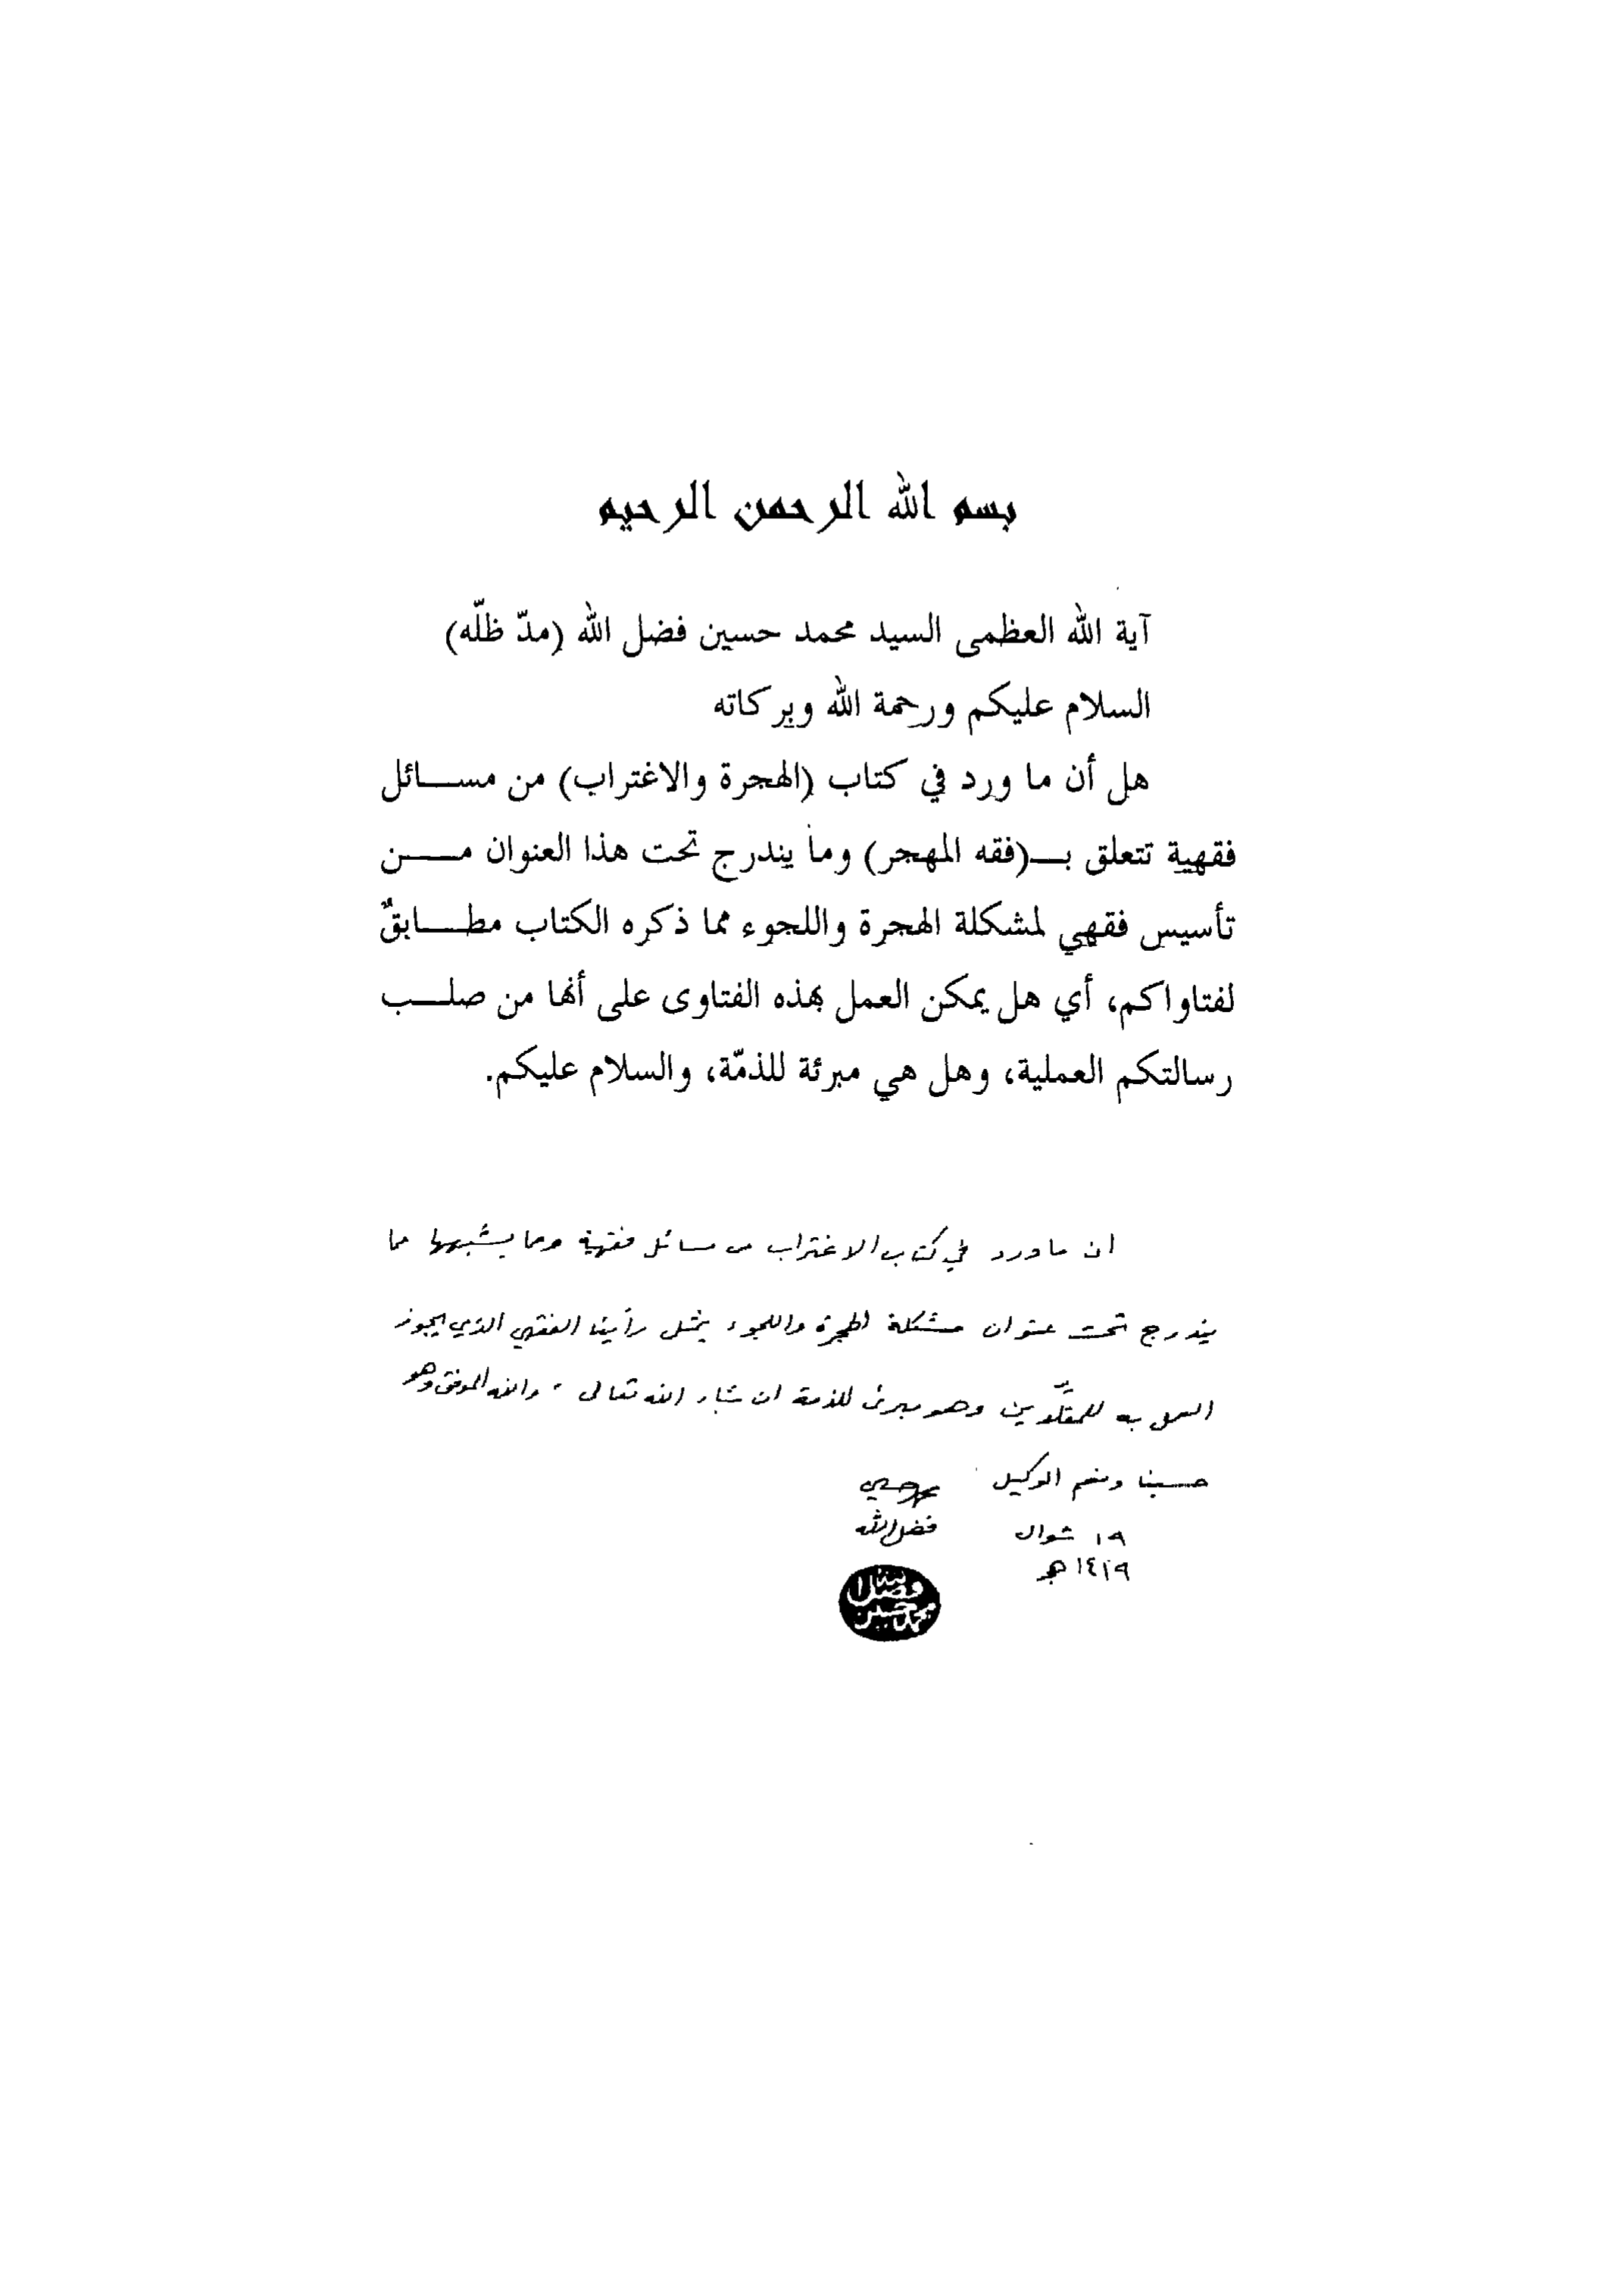 بسم الله الرحمن الرحيم
آية الله العظمى السيد محمد حسين فضل الله (مدّ ظلّه)
السلام عليكم ورحمة الله وبركاته
هل أن ما ورد في كتاب (الهجرة والاغتراب) من مســائل
فقهية تتعلق بــ(فقه المهجر) وما يندرج تحت هذا العنوان مــن
تأسيس فقهي لمشكلة الهجرة واللجوء مما ذكره الكتاب مطــابقٌ
لفتاواكم، أي هل يمكن العمل بهذه الفتاوى على أنها من صلــب
رسالتكم العملية، وهل هي مبرئة للذمّة، والسلام عليكم.
ان ما ورد في كتاب الاغتراب من مسائل فقهية وما يشبهها مما
يندرج تحت عنوان مشكلة الهجرة واللجوء يمثل رأينا الفقهي الذي يجوز
العمل به للمقلّدين وهو مبرئ للذمة ان شاء الله تعالى . والله الموفق وهو
حسبنا ونعم الوكيل
محمد حسين
فضل الله
١٩ شوال
١٤١٩ هـ
فضل الله
محمد حسين